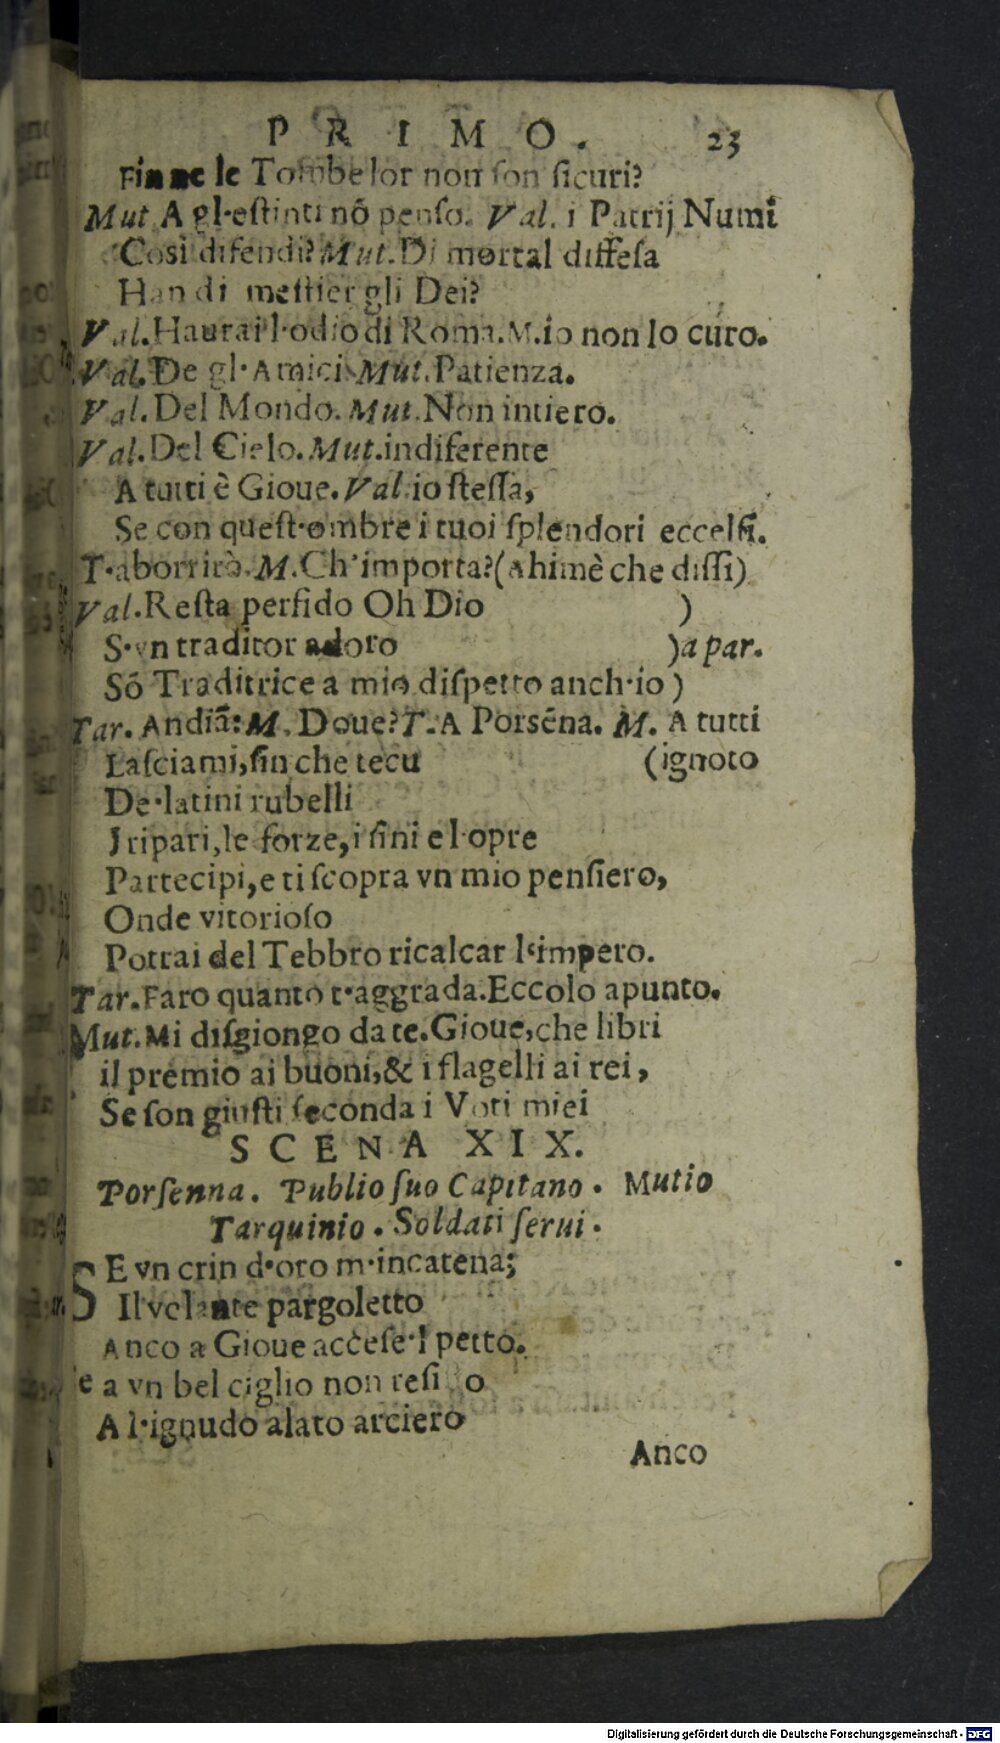 PRIMO. 23
Fin ne le Tombe lor non ſon ſicuri?
Mut. A gl·eſtinti nõ penſo. Val. i Patrij Numi
Così difendi? Mut. Di mortal diffeſa
Han di meſtier gli Dei?
Val. Haurai l·odio di Roma. M. io non lo curo.
Val. De gl· Amici. Mut. Patienza.
Val. Del Mondo. Mut. Non intiero.
Val. Del Cielo. Mut. indiferente
A tutti è Gioue. Val. io ſteſſa,
Se con queſt·ombre i tuoi ſplendori eccelſi.
T·aborrirò. M. Ch'importa? (Ahimè che diſſi)
Val. Reſta perfido Oh Dio )
S·vn traditor adoro )a par.
Sõ Traditrice a mio diſpetto anch·io )
Tar. Andiã: M. Doue? T. A Porsẽna. M. A tutti
Laſciami, ſin che tecu (ignoto
De·latini rubelli
I ripari, le forze, i fini e l·opre
Partecipi, e ti ſcopra vn mio penſiero,
Onde vitorioſo
Potrai del Tebbro ricalcar l'impero.
Tar. Faro quanto t·aggrada. Eccolo apunto.
Mut. Mi diſgiongo da te. Gioue, che libri
il premio ai buoni, & i flagelli ai rei,
Se ſon giuſti ſeconda i Voti miei
SCENA XIX.
Porſenna. Publio ſuo Capitano. Mutio
Tarquinio. Soldati ſerui.
SE vn crin d·oro m·incatena;
Il volante pargoletto
Anco a Gioue acceſe·l petto.
e a vn bel ciglio non
A l·ignudo alato arciero
Anco
Digitalisierung gefördert durch die Deutsche Forschungsgemeinschaft - DFG